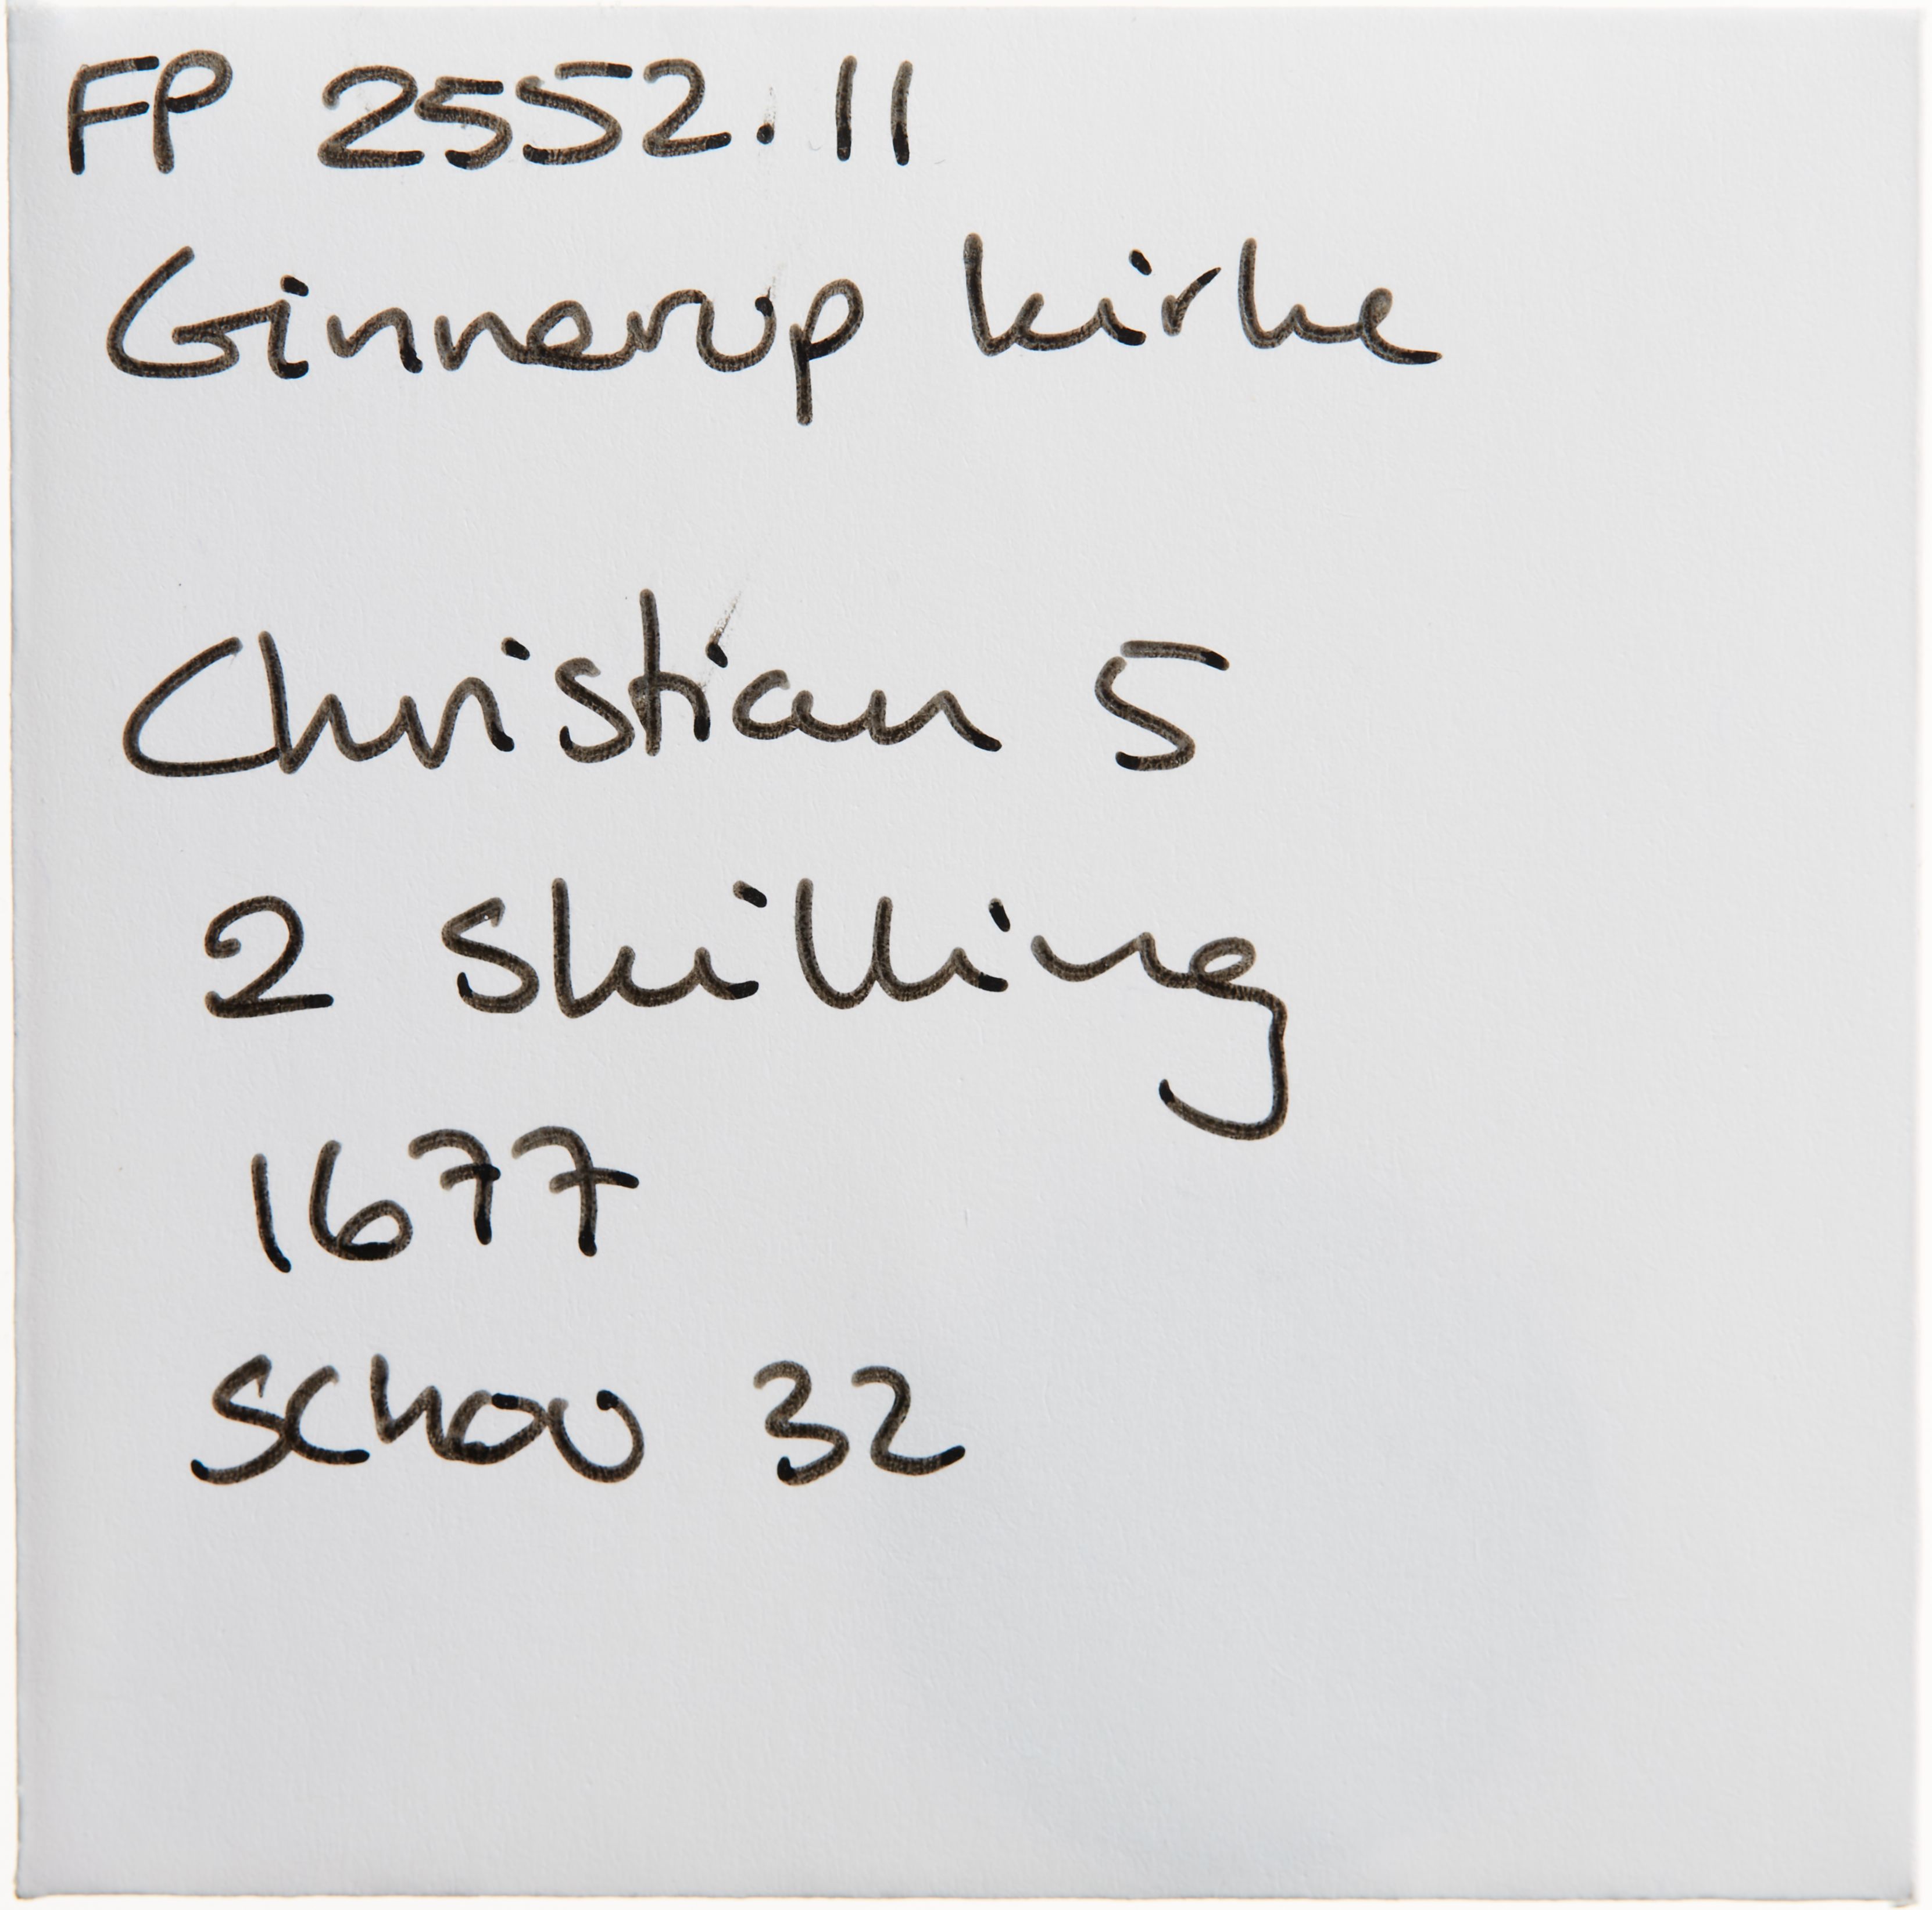 FP 2552.11
Ginnerup kirke
Christian 5
2 skilling
1677
Schou 32